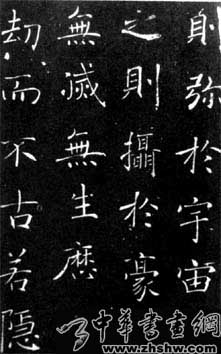 則弥於宇宙
之則攝於豪
無滅無生歷
劫而不古若隱
中華書畫網
www.zhshw.com